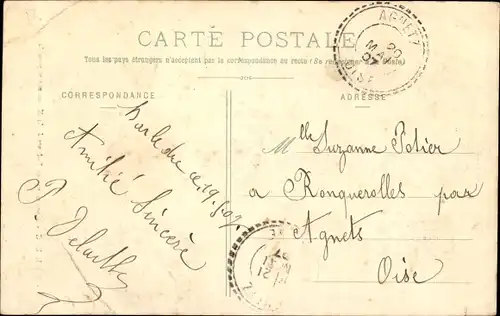 CARTE POSTALE
Tous les pays étrangers n'acceptent pas la correspondance au recto (Se renseigner à la Poste)
CORRESPONDANCE
ADRESSE
Bar le duc ce 19.5.07
Amitié Sincère
P
AGNETZ
20
MAI
07
OISE
Mlle Suzanne Potier
a Ronquerolles par
Agnets
Oise